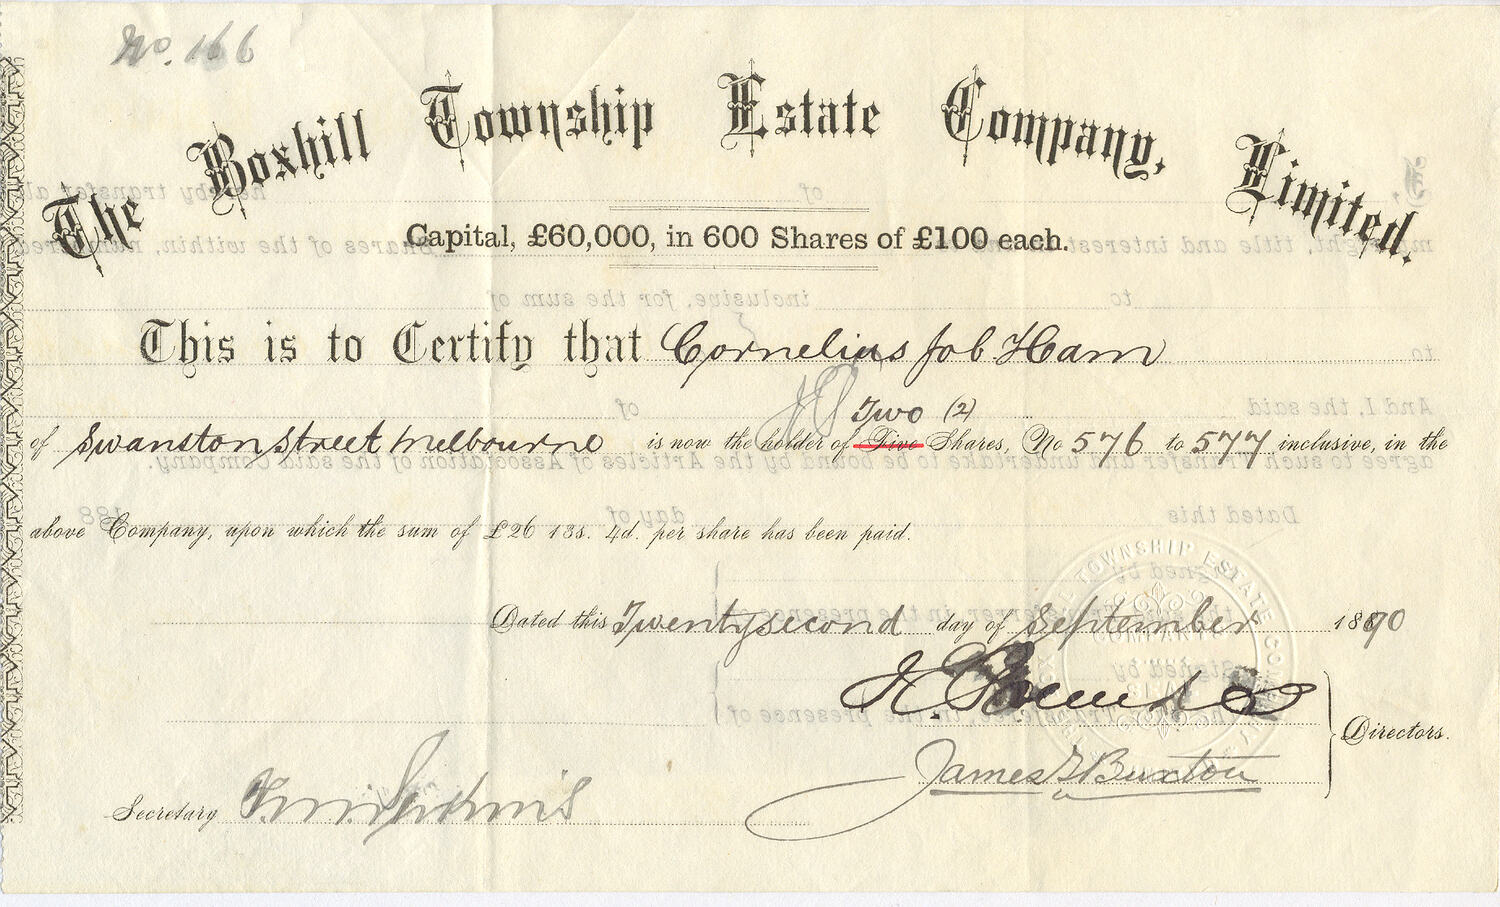 No. 166
The Boxhill Township Estate Company, Limited.
Capital, £60,000, in 600 Shares of £100 each.
This is to Certify that Cornelius Job Ham
Two (2)
of Swanston Street Melbourne is now the holder of Five Shares, No 576 to 577 inclusive, in the
above Company, upon which the sum of £26 13s. 4d. per share has been paid.
Dated this Twentysecond day of September 1890
Directors.
James Buxton
Secretary